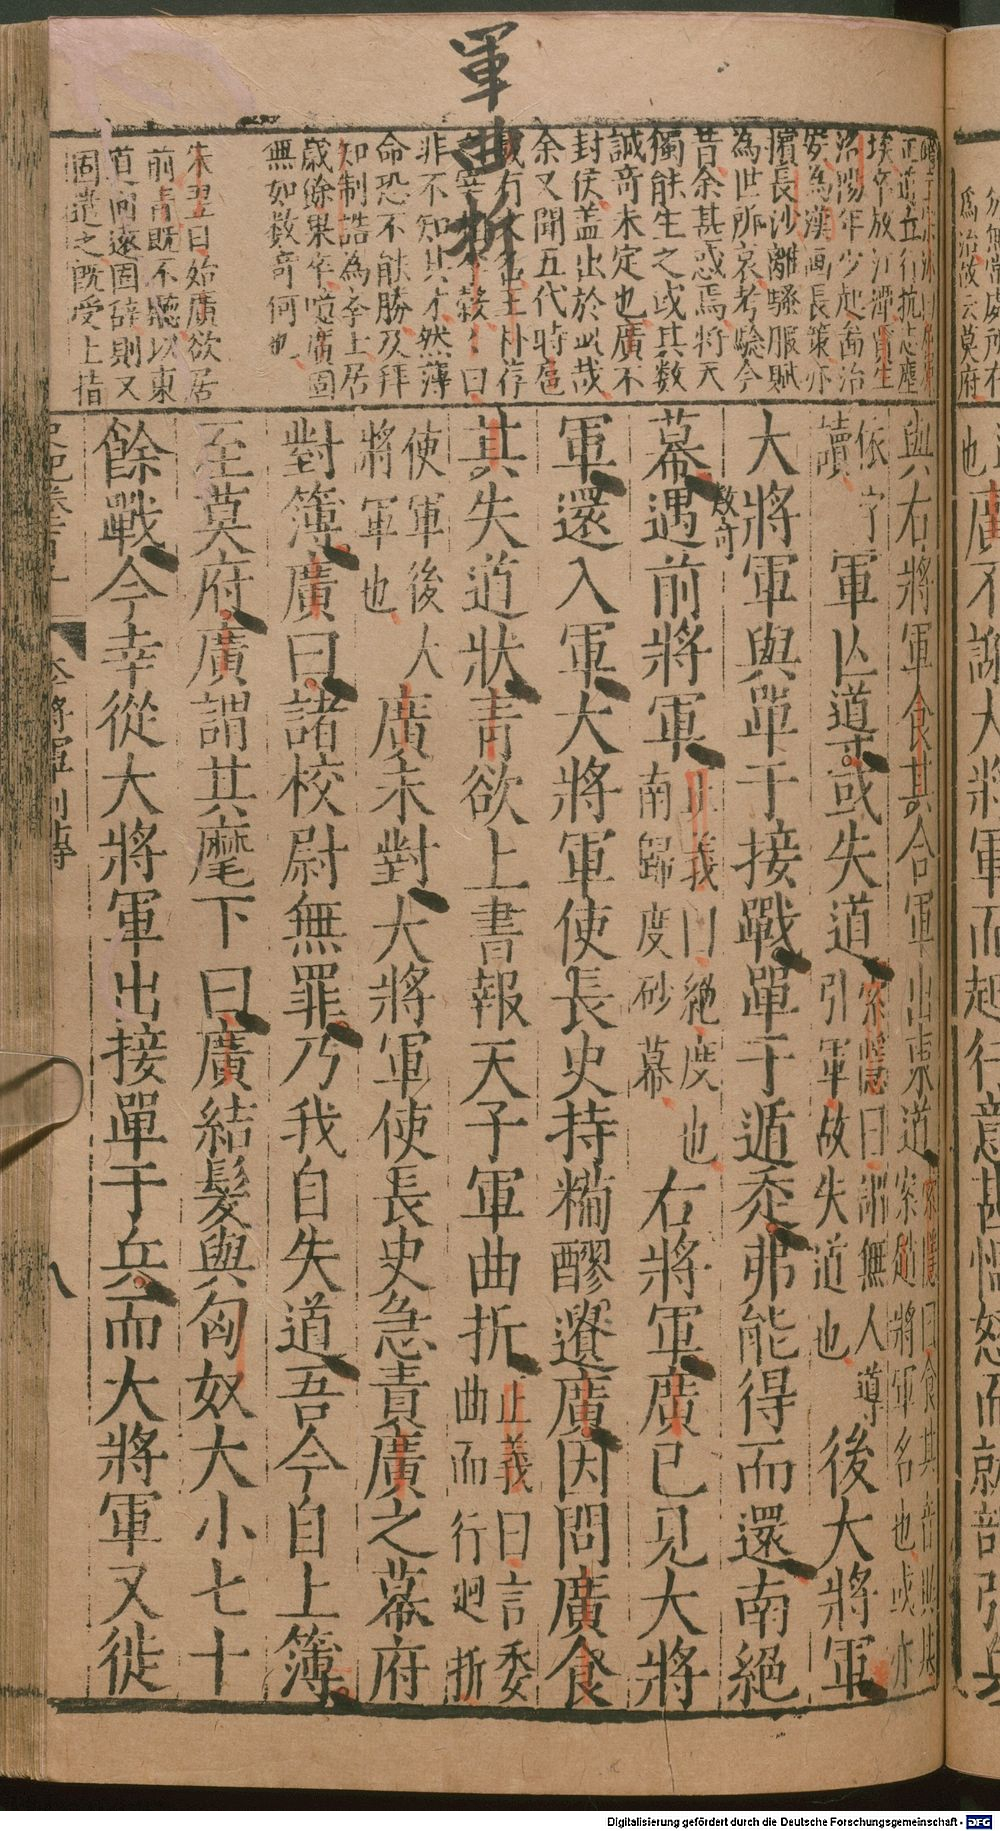 軍曲折
正道立行抗志塵
埃卒放江潭賈生
洛陽年少起為治
安為漢画長策亦
擯長沙離騷服賦
為世所哀考驗今
昔余甚惑焉將天
獨能生之或其数
誠奇未定也廣不
封侯盖出於此哉
余又聞五代時扈
非不知其才然薄
命恐不能勝及拜
知制誥為李上居
歲餘果卒噫廣固
無如数奇何也
朱翌曰始廣欲居
前青既不聽以東
道回遠固辞則又
固遣之既受上指
與右將軍食其合軍出東道
案隱曰食其音異其
案趙將軍名也或亦
依字
讀
軍亡導或失道
索隱曰謂無人導
引軍故失道也
後大將軍
大將軍與單于接戰單于遁走弗能得而還南絕
数奇
幕遇前將軍
正義曰絕度也
南歸度砂幕
右將軍廣已見大將
軍還入軍大將軍使長史持糒醪遺廣因問廣食
其失道狀青欲上書報天子軍曲折
正義曰言委
曲而行廻折
使軍後大
將軍也
廣未對大將軍使長史急責廣之幕府
對簿廣曰諸校尉無罪乃我自失道吾今自上簿
至莫府廣謂其麾下曰廣結髮與匈奴大小七十
餘戰今幸從大將軍出接單于兵而大將軍又徙
李將軍列傳
八
勿無常處所在
為治故云莫府
也
廣不謝大將軍而起行意甚慍怒而就部引兵
Digitalisierung gefördert durch die Deutsche Forschungsgemeinschaft - DFG